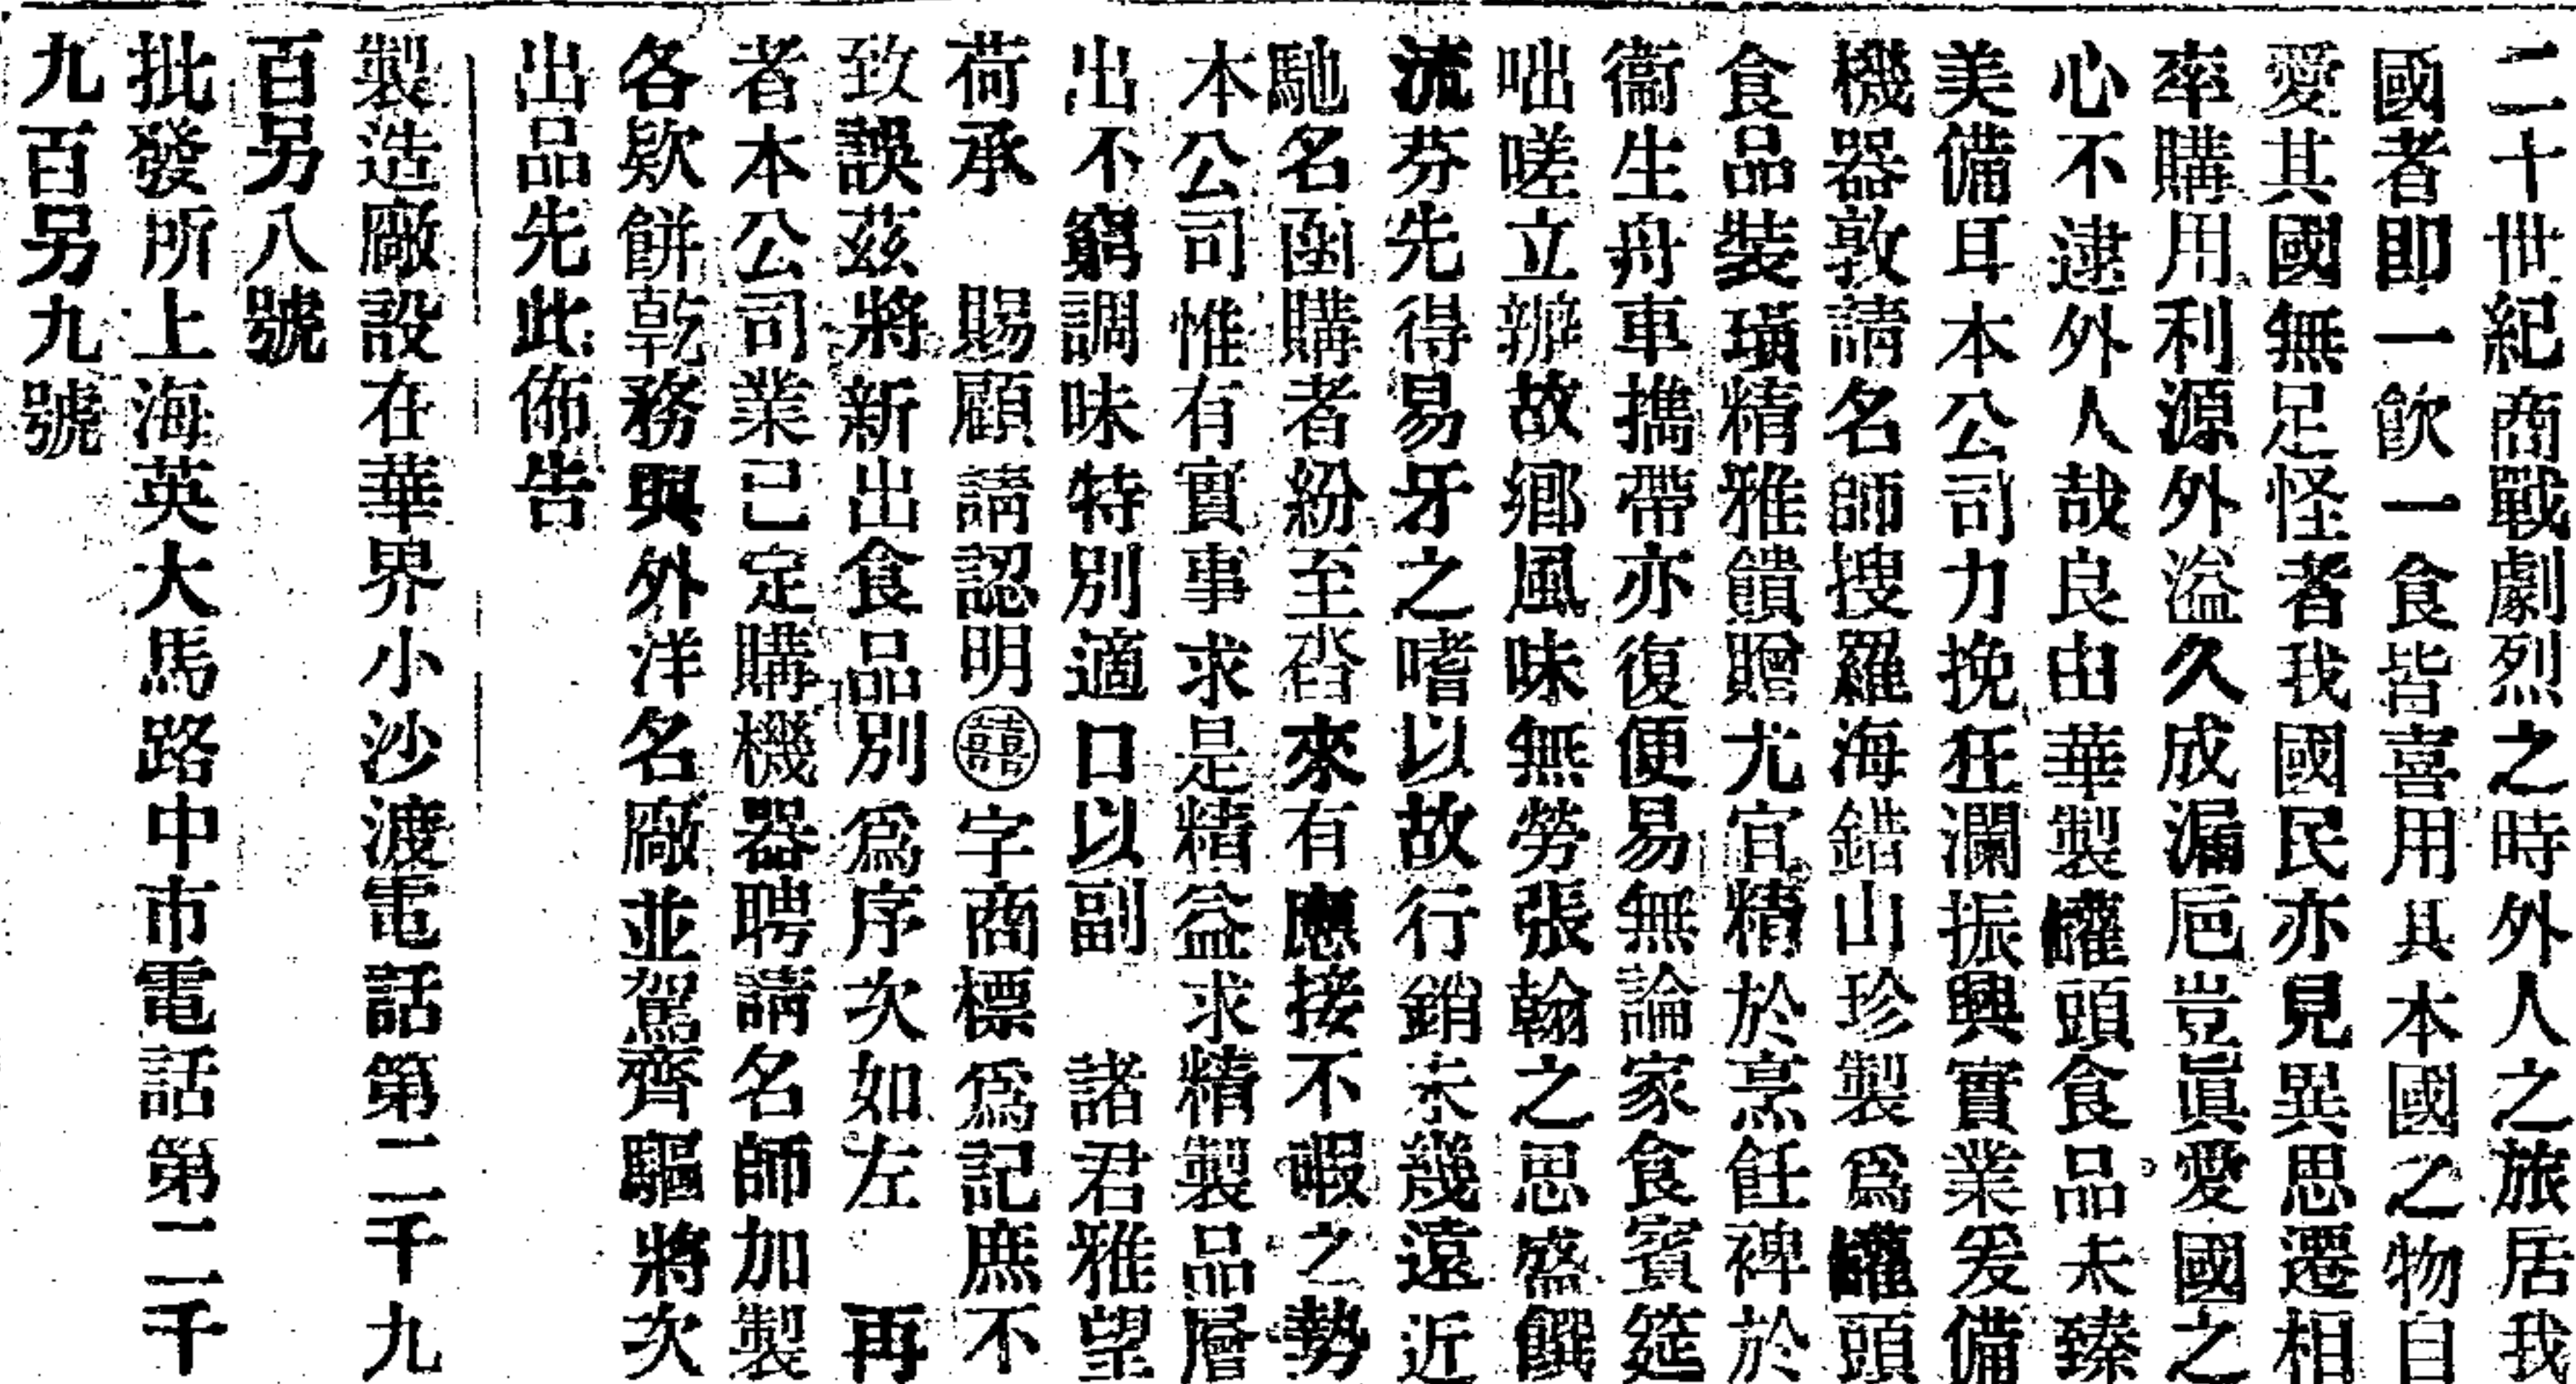 二十世紀商戰劇烈之時外人之旅居我
國者即一飲一食皆喜用其本國之物自
愛其國無足怪者我國民亦見異思遷相
率購用利源外溢久成漏巵豈眞愛國之
心不逮外人哉良由華製罐頭食品未臻
美備耳本公司力挽狂瀾振興實業爰備
機器敦請名師搜羅海錯山珍製爲罐頭
食品裝璜精雅饋贈尤宜精於烹飪裨於
衞生舟車攜帶亦復便易無論家食賓筵
咄嗟立辦故鄉風味無勞張翰之思盛饌
流芬先得易牙之嗜以故行銷未幾遠近
馳名函購者紛至沓來有應接不暇之勢
本公司惟有實事求是精益求精製品層
出不窮調味特別適口以副 諸君雅望
荷承 賜顧請認明囍字商標爲記庶不
致誤茲將新出食品別爲序次如左 再
者本公司業已定購機器聘請名師加製
各欵餅乾務與外洋名廠並駕齊驅將次
出品先此佈告
製造廠設在華界小沙渡電話第二千九
百另八號
批發所上海英大馬路中市電話第二千
九百另九號